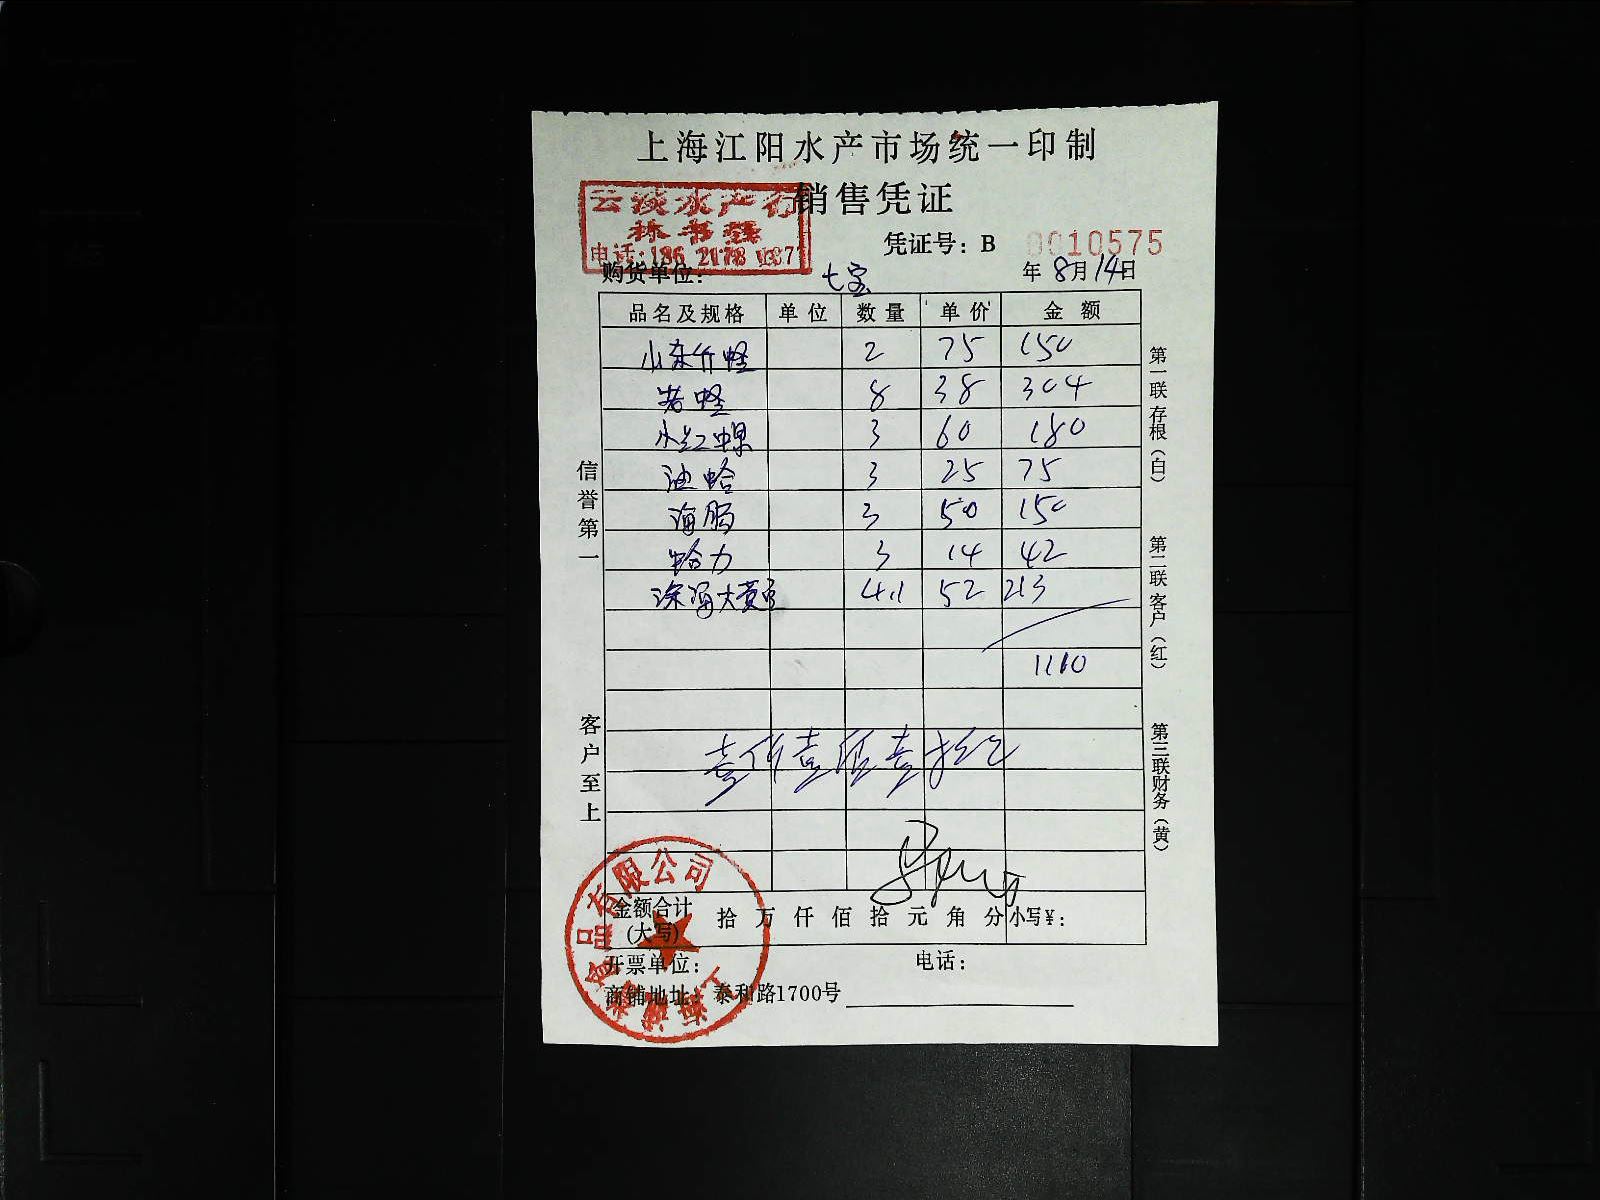 上海江阳水产市场统一印制
销售凭证
云淡水产行
电话:186
凭证号: B 0010575
购货单位: 七宝 年 8月14日
品名及规格 单位 数量 单价 金额
山东竹蛏 2 75 150
岩蛏 8 38 304
小红螺 3 60 180
油蛤 3 25 75
海肠 3 50 150
蛤力 3 14 42
深海大黄 4.1 52 213
1110
壹仟壹佰壹拾元
金额合计(大写) 拾 万 仟 佰 拾 元 角 分 小写¥:
开票单位: 电话:
商铺地址: 泰和路1700号
信誉第一
客户至上
第一联 存根(白)
第二联 客户(红)
第三联 财务(黄)
食品有限公司
上海